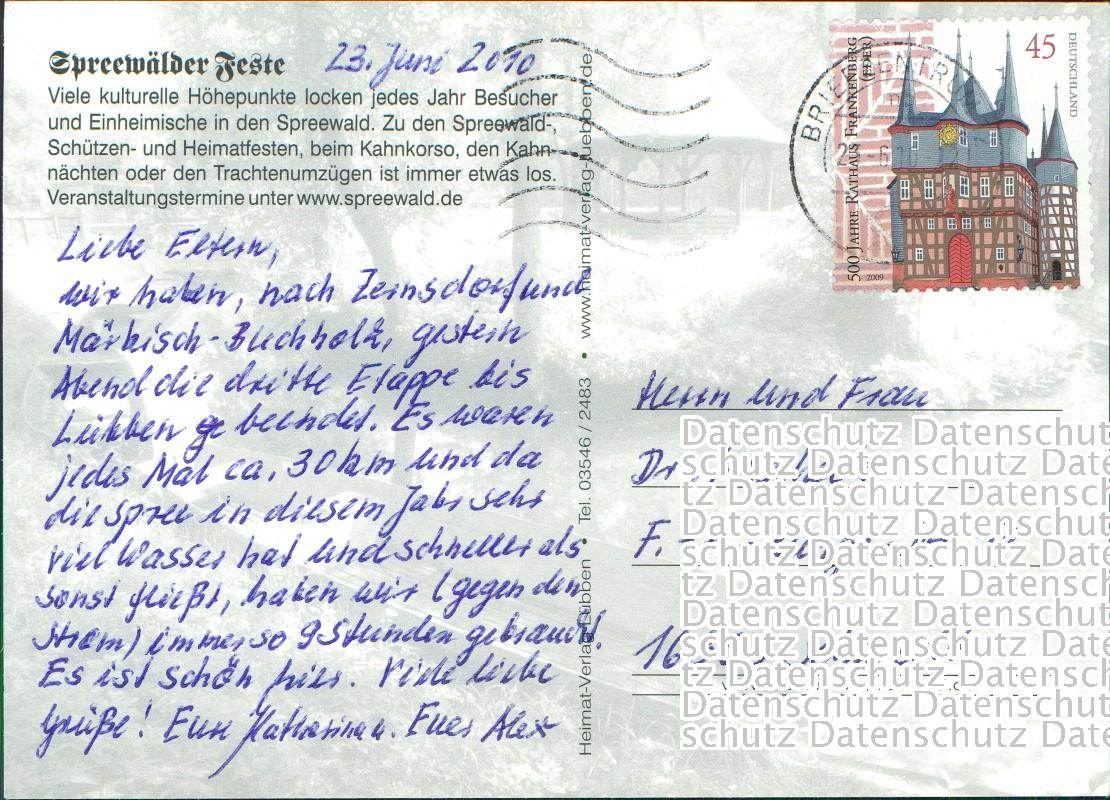 Spreewälder Feste
23. Juni 2010
Viele kulturelle Höhepunkte locken jedes Jahr Besucher
und Einheimische in den Spreewald. Zu den Spreewald-,
Schützen- und Heimatfesten, beim Kahnkorso, den Kahn-
nächten oder den Trachtenumzügen ist immer etwas los.
Veranstaltungstermine unter www.spreewald.de
Liebe Eltern,
wir haben, nach Zernsdorf und
Märkisch-Buchholz, gestern
Abend die dritte Etappe bis
Lübben beendet. Es waren
jedes Mal ca. 30 km und da
die Spree in diesem Jahr sehr
viel Wasser hat und schneller als
sonst fließt, haben wir (gegen den
Strom) immer so 9 Stunden gebraucht!
Es ist schön hier. Viele liebe
Grüße! Eure Katharina u. Euer Alex
Heimat-Verlag Lübben • Tel. 03546 / 2483 • www.heimat-verlag-luebben.de
500 JAHRE RATHAUS FRANKENBERG
(EDER)
45
DEUTSCHLAND
2009
BRIEFZENTRUM
Herrn und Frau
Dr.
F.
16
Datenschutz Datenschut
schutz Datenschutz Date
tz Datenschutz Datensch
Datenschutz Datenschut
schutz Datenschutz Date
tz Datenschutz Datensch
Datenschutz Datenschut
schutz Datenschutz Date
tz Datenschutz Datensch
Datenschutz Datenschut
schutz Datenschutz Date